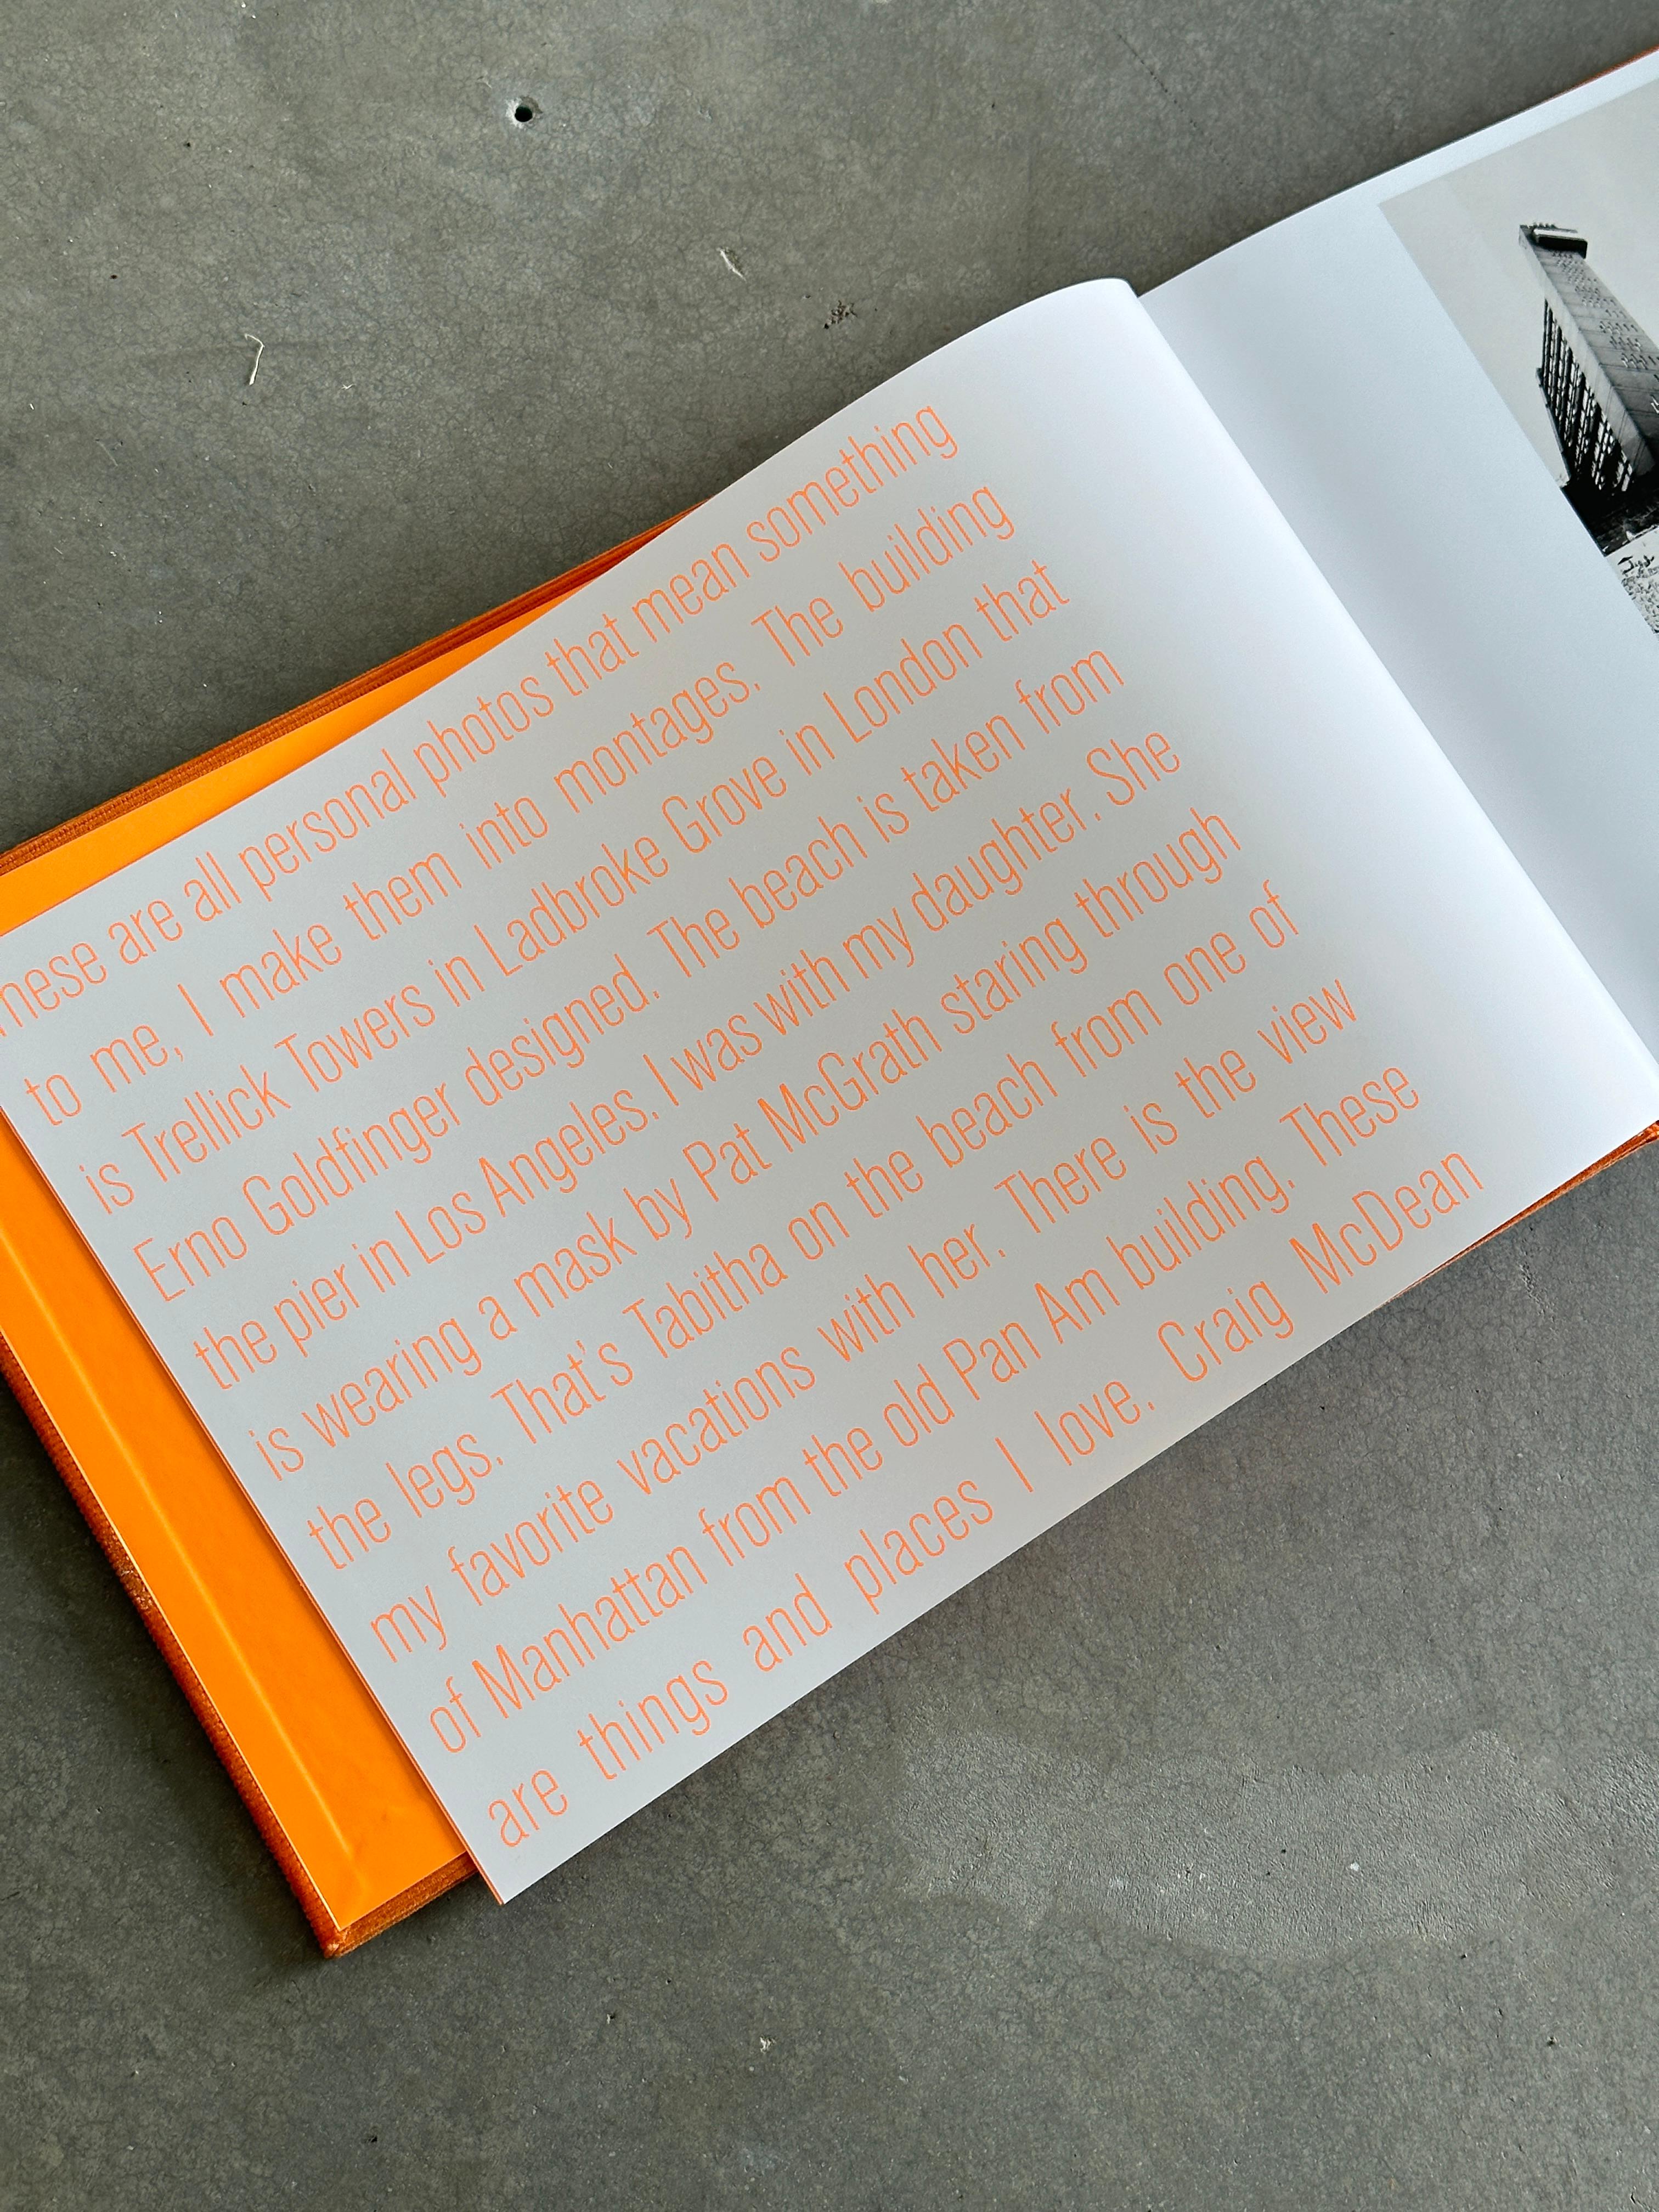 These are all personal photos that mean something
to me, I make them into montages. The building
is Trellick Towers in Ladbroke Grove in London that
Erno Goldfinger designed. The beach is taken from
the pier in Los Angeles. I was with my daughter. She
is wearing a mask by Pat McGrath staring through
the legs. That's Tabitha on the beach from one of
my favorite vacations with her. There is the view
of Manhattan from the old Pan Am building. These
are things and places I love. Craig McDean